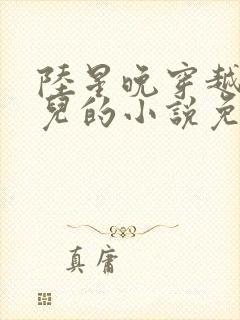 陸星晚穿越
兒的小說免
真庸